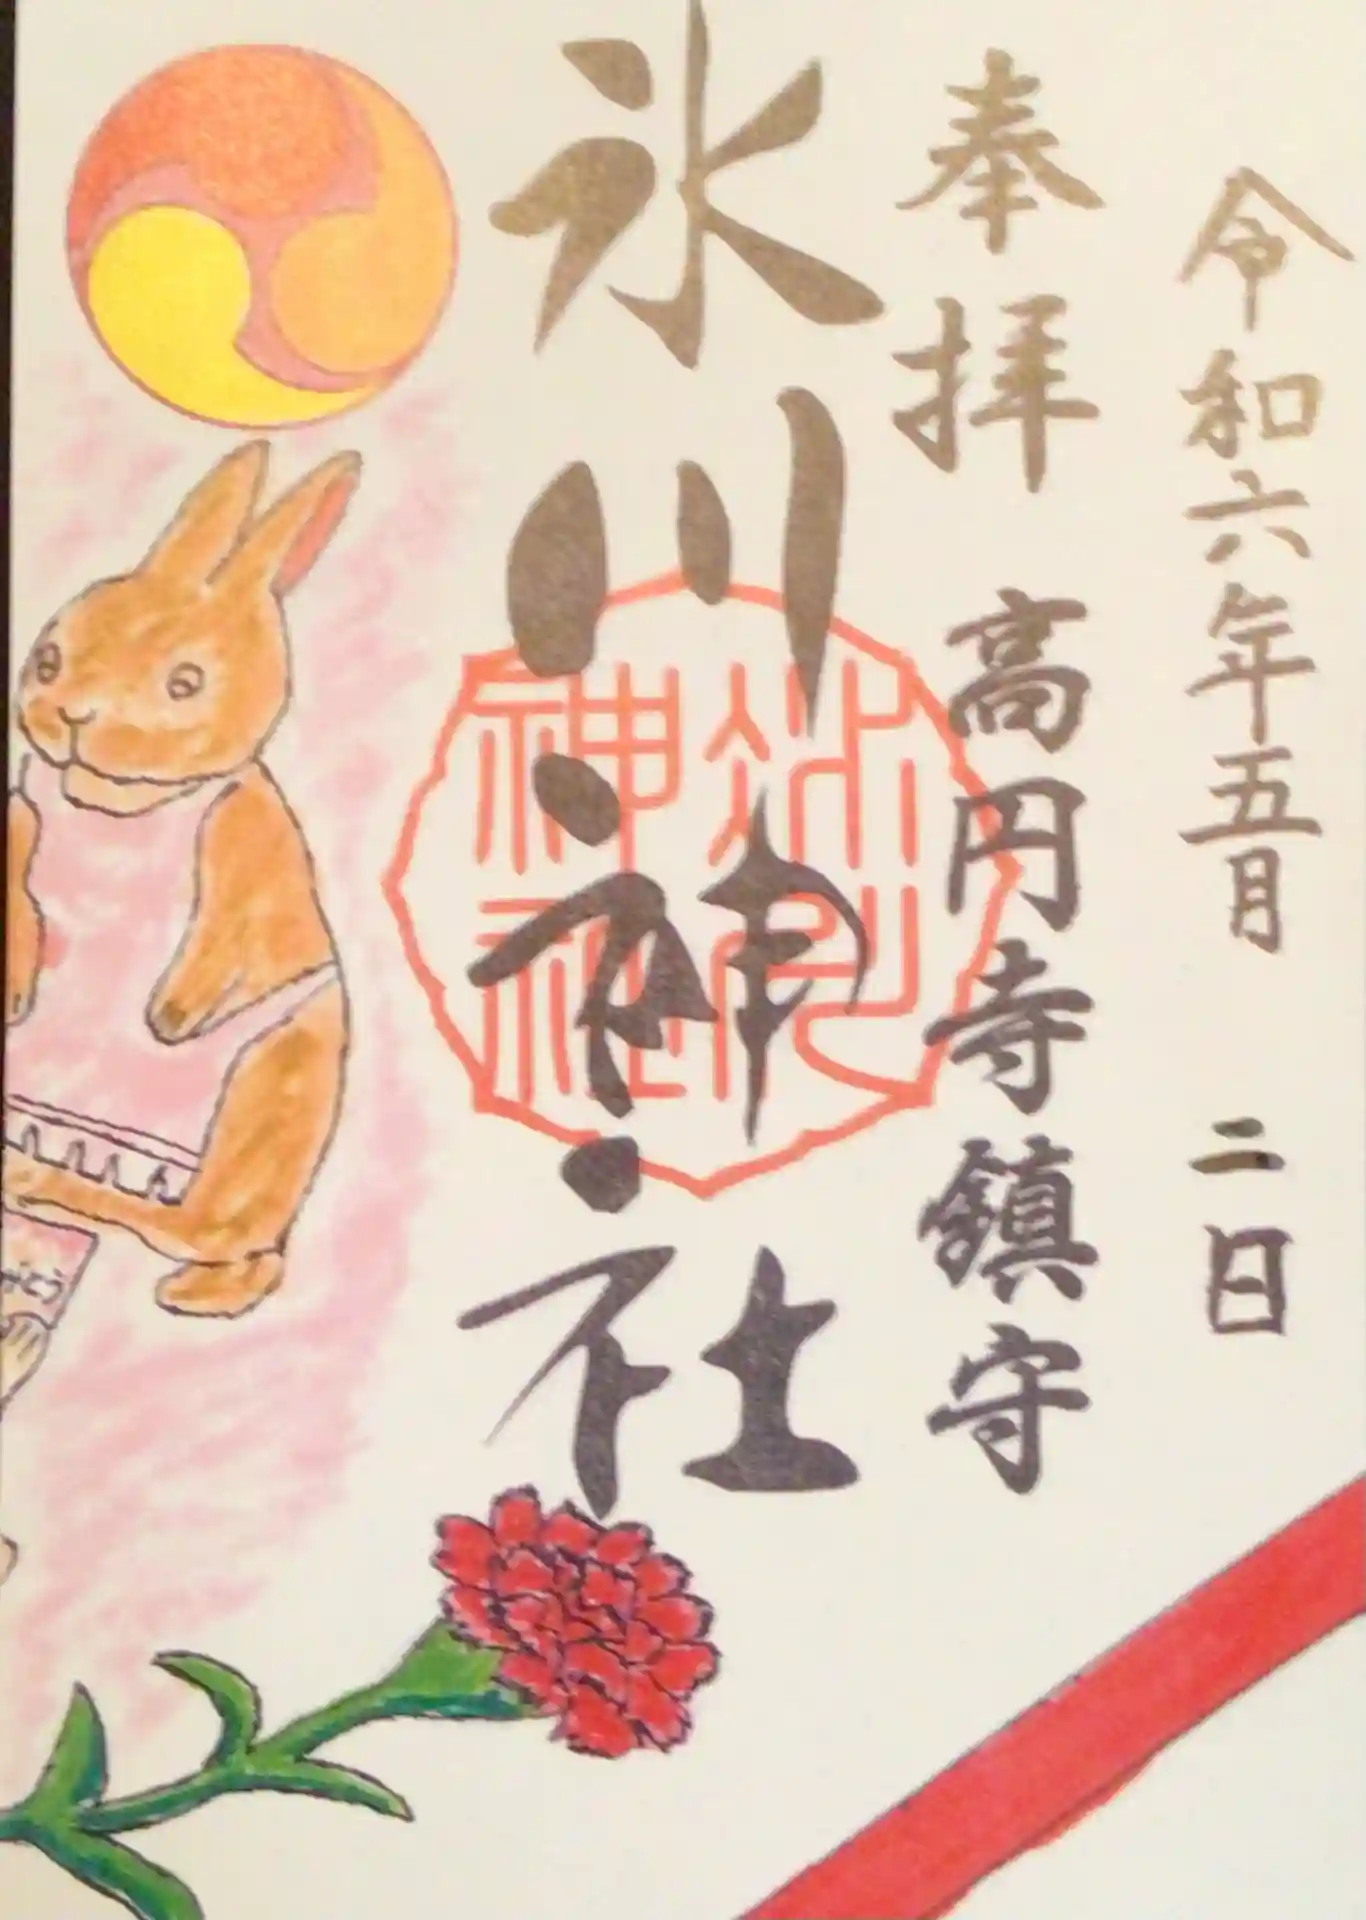 令和六年五月 二日
奉拝 高円寺鎮守
氷川神社